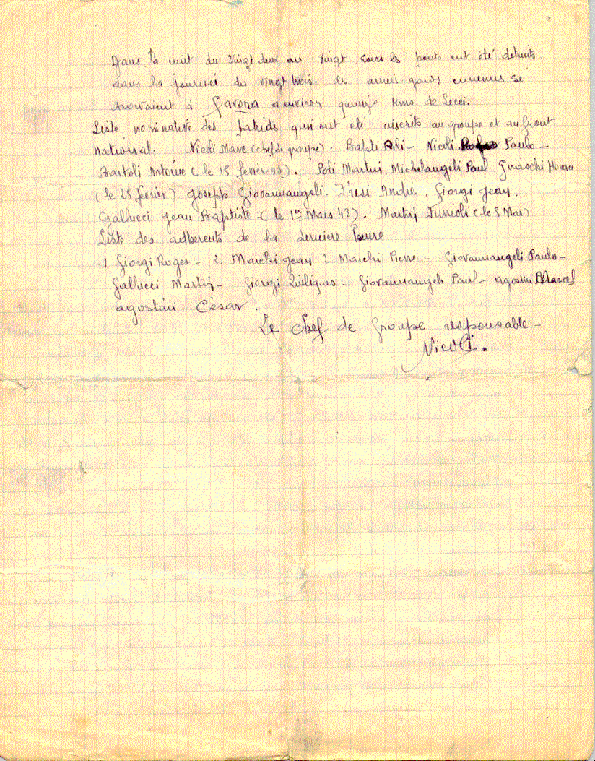 Dans la nuit du vingt deux au vingt trois les ponts ont été détruits
dans la journée du vingt trois les armes ayant convenus se
trouvaient à Favona a environ quinze kms de Lecci.
Liste nominative des patriots qui ont été inscrits au groupe et au front
national. Nicoli Marc (chef de groupe). Balde Ali - Nicoli Paulo -
Bartoli Antoine (le 15 fevrier 43). Poli Martin, Michelangeli Paul
(le 25 fevrier) Joseph Giovannangeli. Andre. Giorgi Jean.
Gallucci Jean Baptiste (le 17 Mars 43). Martini (le 5 Mai)
Liste des adherents de la derniere heure
1 Giorgi Roger - 2. Marchi Jean 3. Marchi Pierre - Giovannangeli Paulo -
Gallucci Martin - Giorgi Quilicus - Giovannangeli Paul - agostini
agostini Cesar.
Le chef de Groupe responsable -
Nicoli.